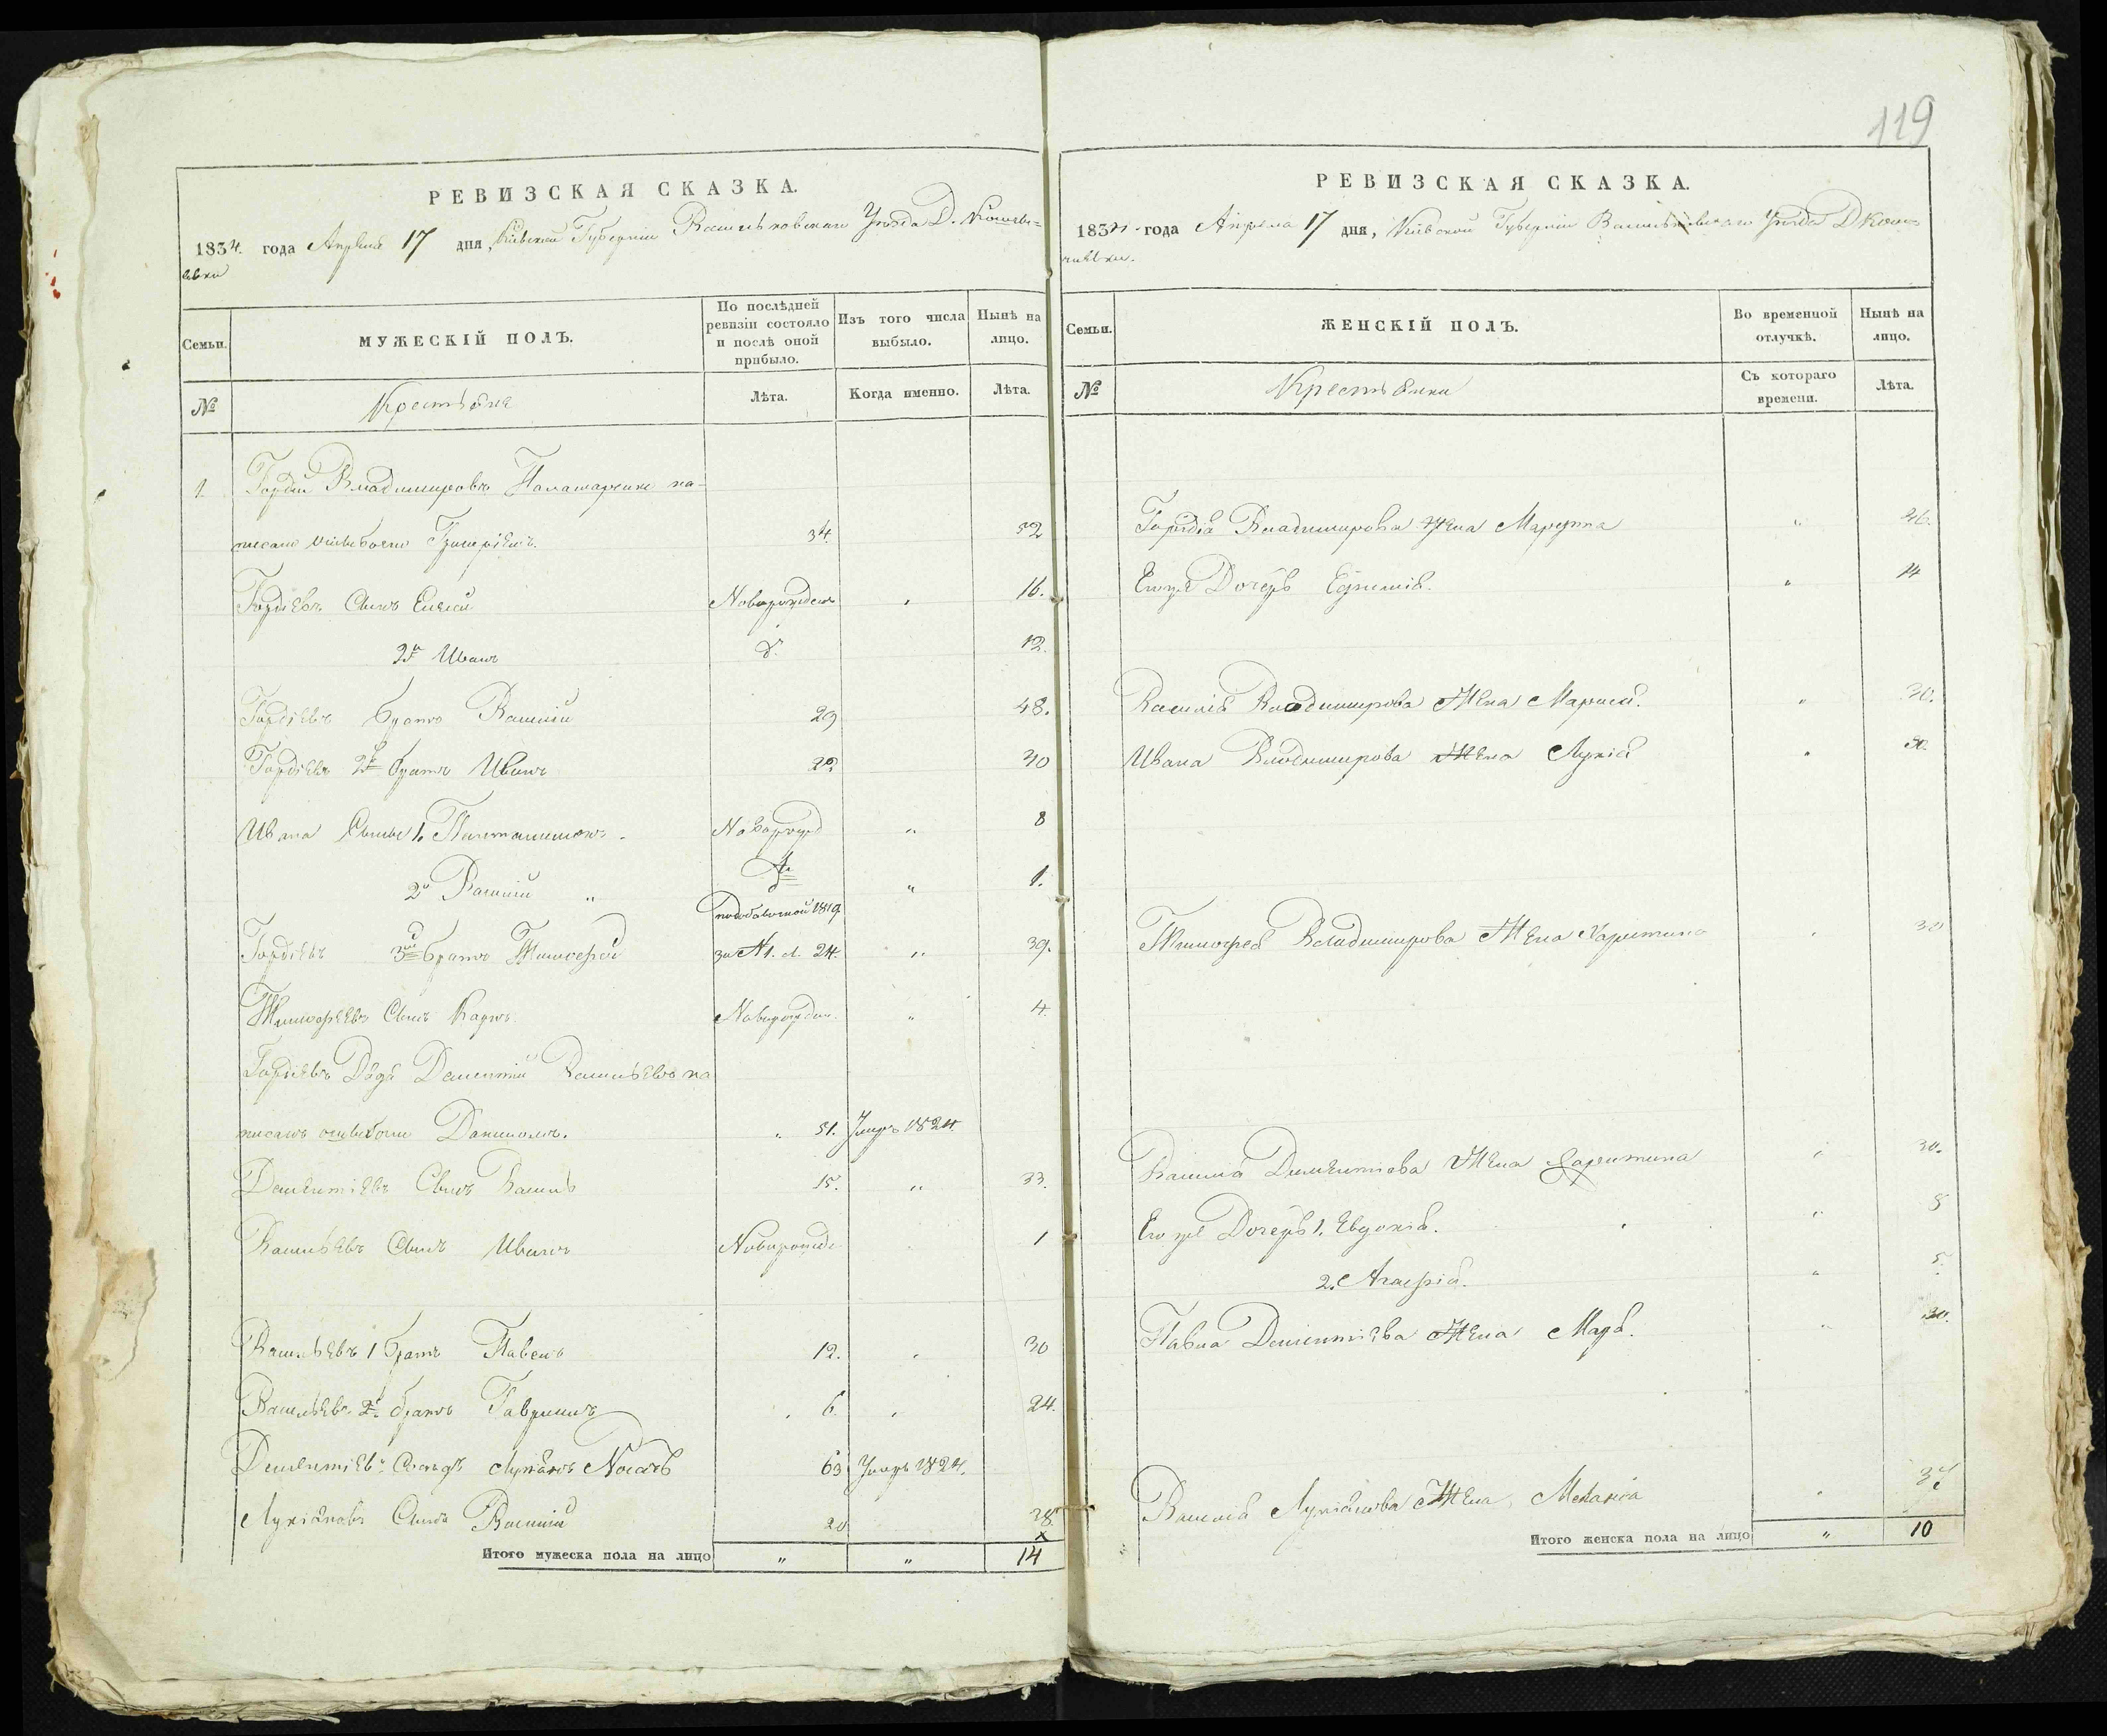 119
РЕВИЗСКАЯ СКАЗКА.
1834. года Апреля 17 дня, Кіевской Губерніи Васильковскаго Уезда Д.
МУЖЕСКІЙ ПОЛЪ.
Семьи.
По послѣдней ревизіи состояло и послѣ оной прибыло.
Изъ того числа выбыло.
Нынѣ на лицо.
№
Крестьяне
Лѣта.
Когда именно.
Лѣта.
1. Гордій Владимировъ на-
писанъ ошибкою 34. 52
Гордіевъ Сынъ Елисей Новорожденъ 16.
2й Иванъ 12.
Гордіевъ братъ Василій 29 48.
Гордіевъ 2й братъ Иванъ 22 40
Ивана Сынъ 1. Новорожд „ 8
2й Василій „ „ 1.
1819
Гордіевъ 3й братъ Тимофей за №1. л. 24. „ 39.
Тимофеевъ Сынъ Карпъ Новорожден. „ 4.
Гордіевъ Дядя Дементій Васильевъ на
писанъ ошибкою Даниломъ. „ 51. Умеръ 1824.
Дементіевъ Сынъ Василь 15. „ 33.
Васильевъ Сынъ Иванъ Новорожде 1
Васильевъ 1 братъ Павелъ 12. 30
Васильевъ 2й братъ Гаврило 6. 24.
Дементіевъ Сосѣдъ Лукіянъ Носачь 63 Умеръ 1824.
Лукіяновъ Сынъ Василій 20 38.
х
Итого мужеска пола на лицо „ „ 14
РЕВИЗСКАЯ СКАЗКА.
1834 года Апреля 17 дня, Кіевской Губерніи Васильковскаго Уезда Д
Семьи.
ЖЕНСКІЙ ПОЛЪ.
Во временной отлучкѣ.
Нынѣ на лицо.
№
Крестьянки
Съ котораго времени.
Лѣта.
Гордія Владимирова Жена „ 46.
Его же Дочерь „ 14
Василія Владимирова Жена Марися. „ 30.
Ивана Владимирова Жена Лукія „ 30.
Тимофея Владимирова Жена Харитина 30
Василія Дементіева Жена Харитина „ 30.
Его же Дочерь 1. Евдокія. „ 8
2. Агафія. „ 5.
Павла Дементіева Жена „ 30.
Василія Лукіянова Жена Меланія 37
Итого женска пола на лицо „ 10